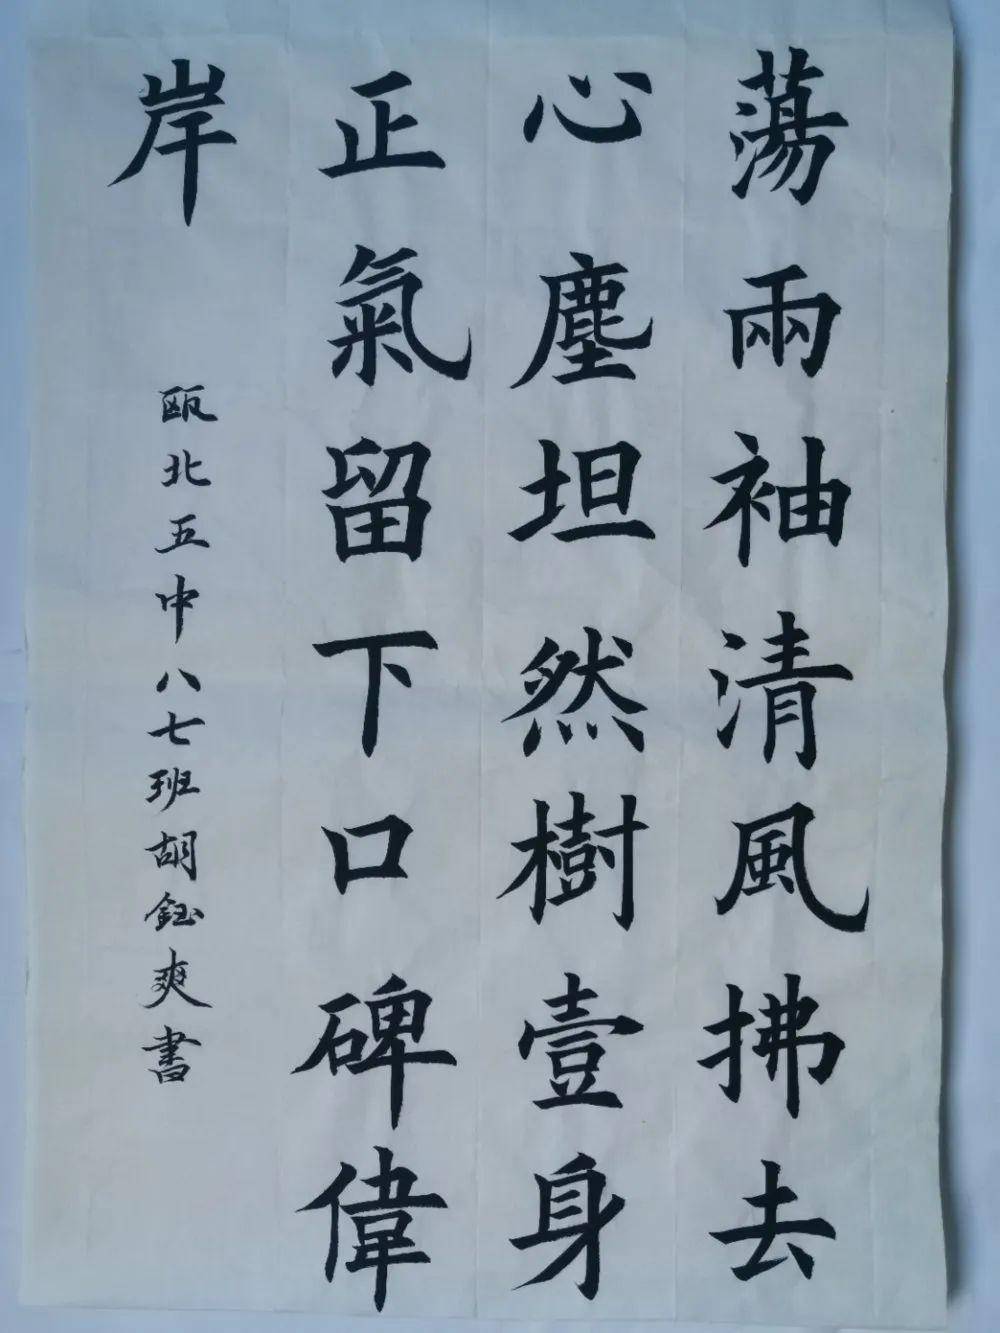 蕩兩袖清風拂去
心塵坦然樹壹身
正氣留下口碑偉
岸
瓯北五中八七班胡鈺爽書